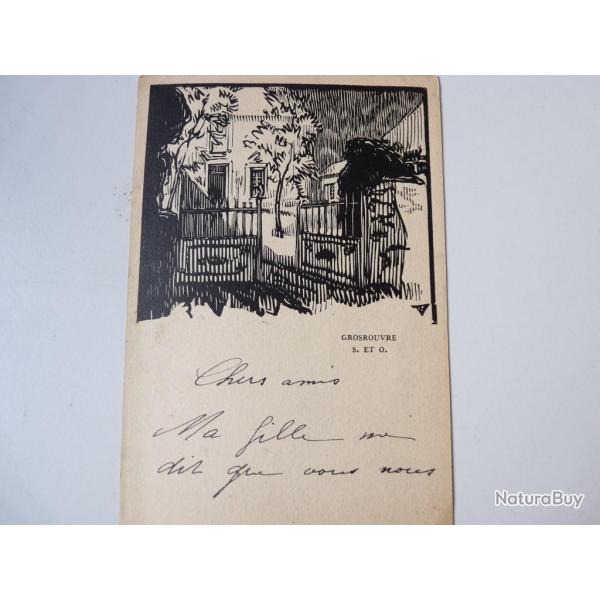 GROSROUVRE
S. ET O.
Chers amis
Ma fille me
dit que vous nous
NaturaBuy